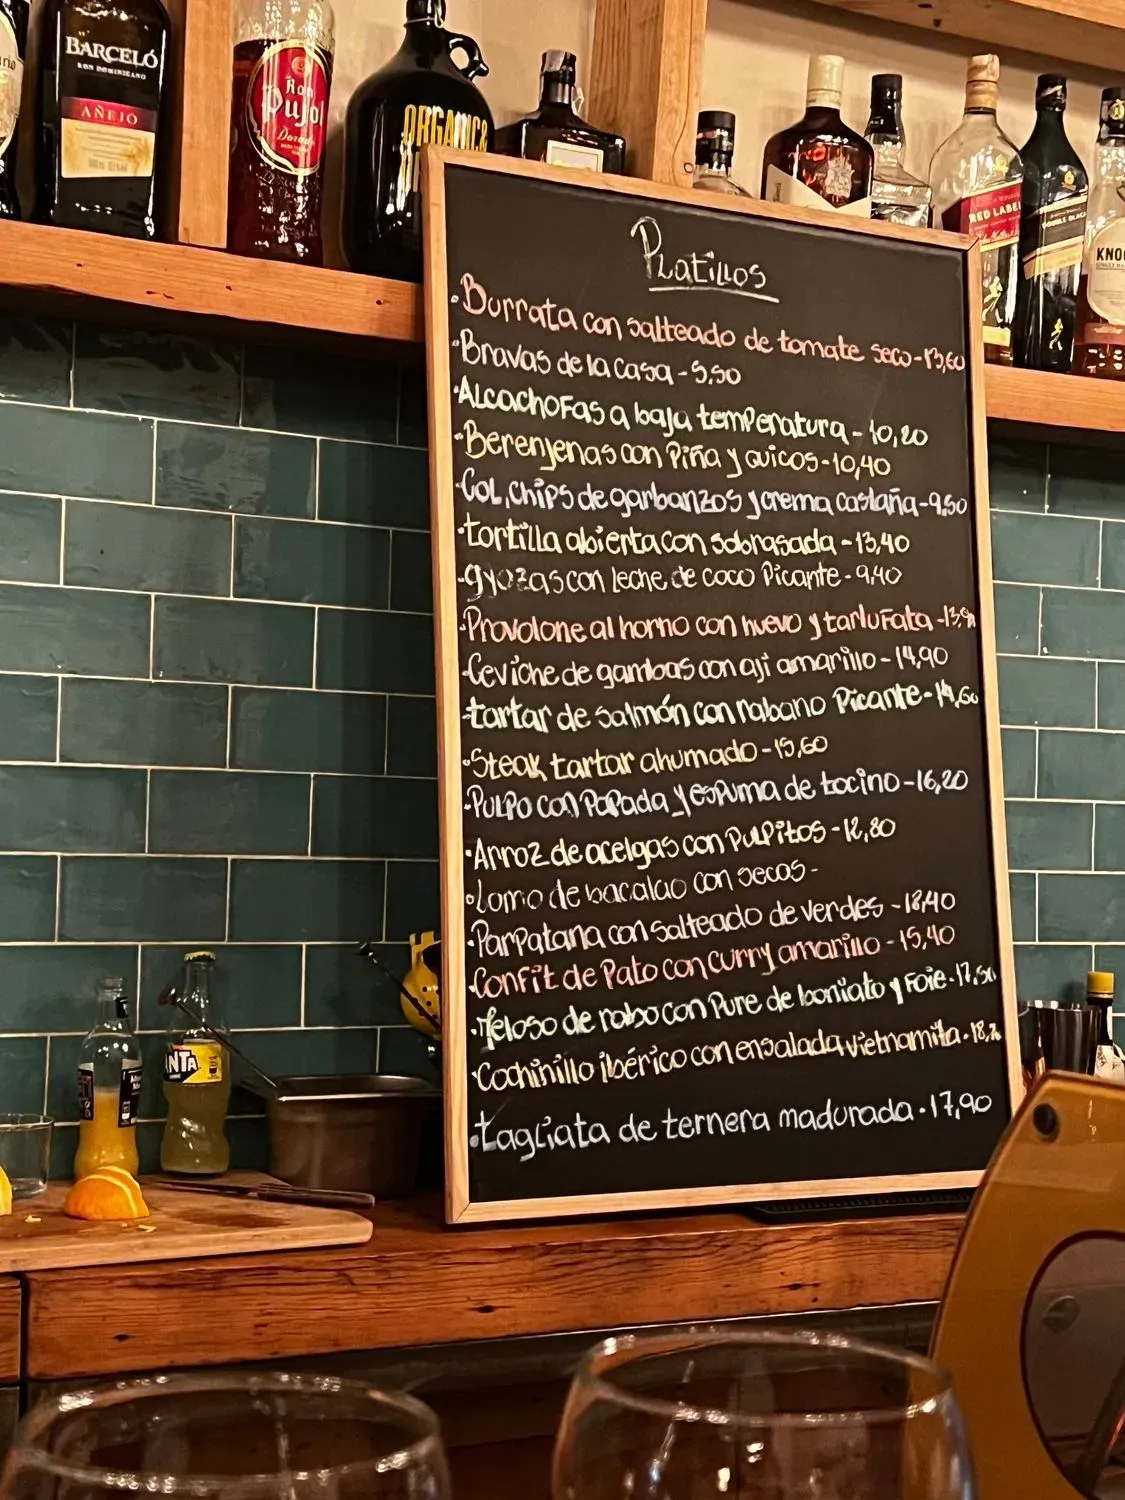 BARCELÓ
RON DOMINICANO
AÑEJO
Ron
Pujol
Dorado
ORGANIC&
RED LABEL
KNO
Platillos
·Burrata con salteado de tomate seco-13,60
·Bravas de la casa-5,50
·Alcachofas a baja temperatura-10,20
·Berenjenas con Piña y quicos-10,40
·Col, chips de garbanzos y crema castaña-9,50
·tortilla abierta con sobrasada-13,40
·gyozas con leche de coco Picante-9,40
·Provolone al horno con huevo y tartufata-13,
·Ceviche de gambas con ají amarillo-14,90
·tartar de salmón con rabano Picante-14,60
·Steak tartar ahumado-15,60
·Pulpo con Papada y espuma de tocino-16,20
·Arroz de acelgas con Pulpitos-12,80
·Lomo de bacalao con secos-
·Parpatana con salteado de verdes-18,40
·Confit de Pato con curry amarillo-15,40
·Meloso de rabo con Pure de boniato y Foie-17,50
·Cochinillo ibérico con ensalada vietnamita·18,
·tagliata de ternera madurada·17,90
NTA